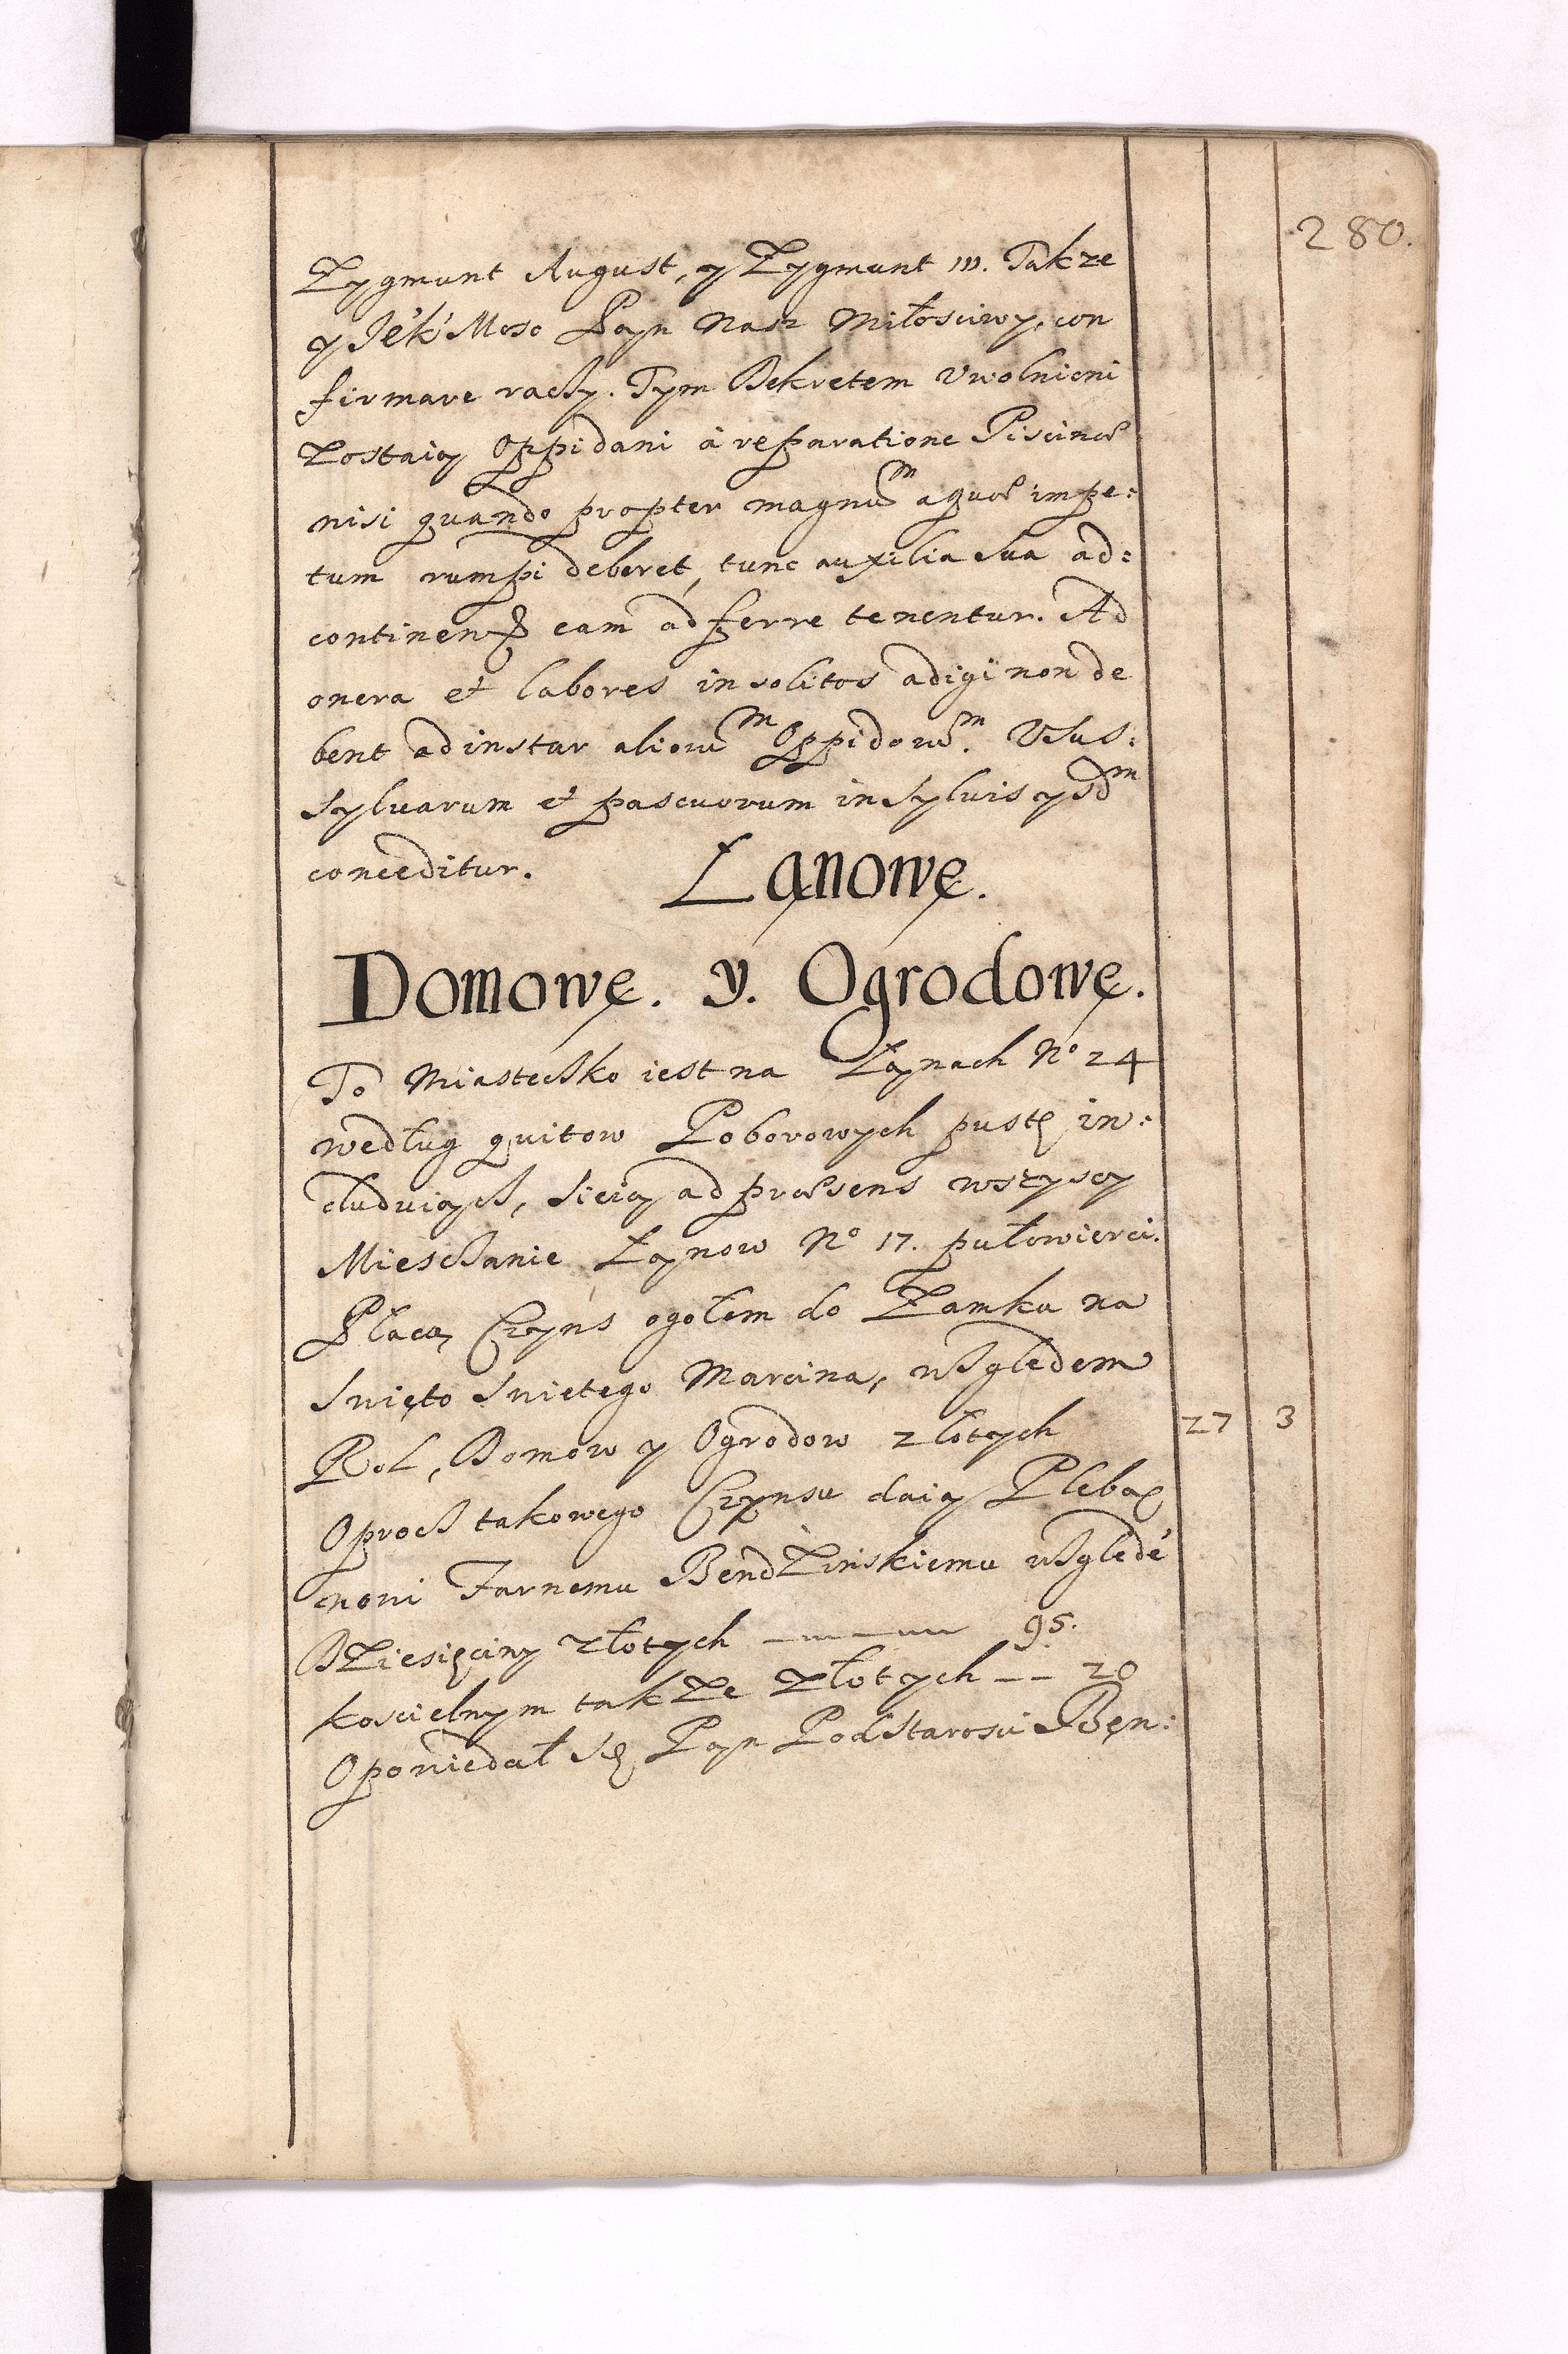 280.
Zygmunt August, y Zygmunt III. Takze
y Jék Mość Pąn Nasz Miłosciwy, con
firmare raczy. Tym Dekretem Uwolnieni
Zostaią Oppidani à reparatione Piscinæ
nisi quando propter magnũ aquæ impe:
tum rumpi deberet, tunc auxilia sua ad:
continend eam adferre tenentur. Ad
onera et labores insolitos adigi non de
bent ad instar aliorũ Oppidorũ. Usus:
sylvarum et pascuorum in sylvis ysdm
conceditur.
Łąnowę.
Domowę. y. Ogrodowę.
To Miasteczko iest na Łąnach No 24
według quitow Poborowych pustę in:
cluduiącz, Sieią ad præsens wszyscy
Miesczanie Łąnow No 17. pułcwierci.
Płacą Czyns ogołem do Zamku na
Swięto Swietego Marcina, wzgledem
Rol, Domow y Ogrodow złotych 27 3
Oprocz takowego Czynsu daią Plebą
nowi Farnemu Bendzinskiemu wzgledé
Dziesięciny złotych 95.
Koscielnym takze złotych 20
Opowiedał Się Pąn Podstarosci Bęn: